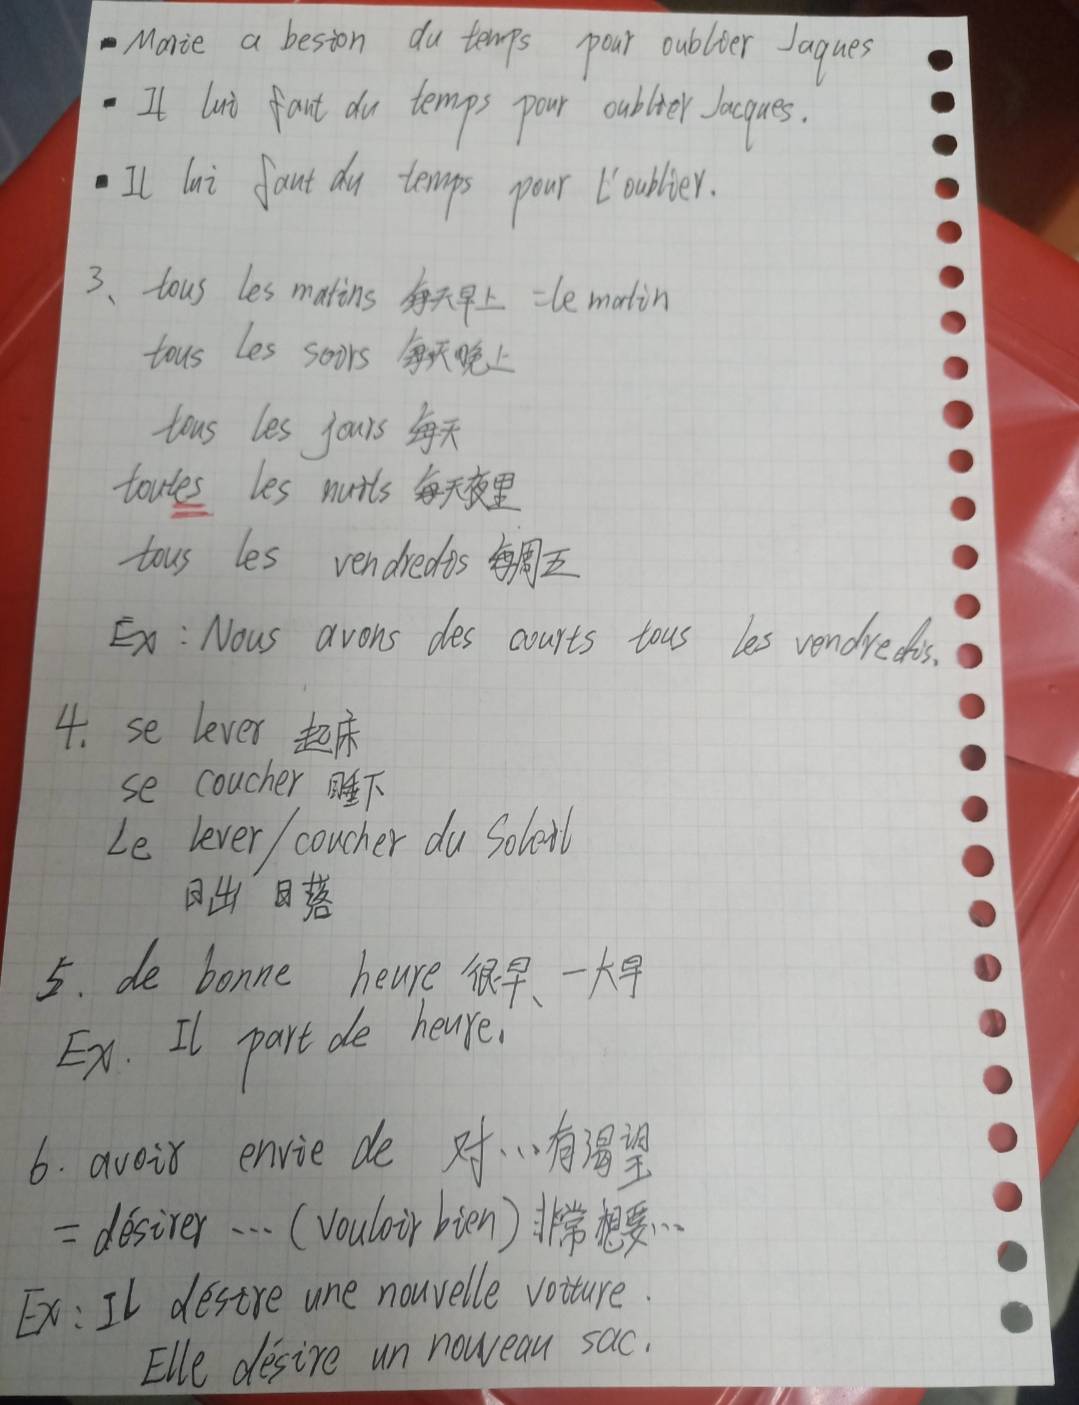 - Marie a besion du temps pour oublier Jaques
- Il lui faut du temps pour oublier Jacques.
- Il lui faut du temps pour l'oublier.
3、tous les matins 每天早上 =le matin
tous les soirs 每天晚上
tous les jours 每天
toutes les nuits 每天夜里
tous les vendredis 每周五
Ex : Nous avons des courts tous les vendredis.
4. se lever 起床
se coucher 睡下
Le lever/coucher du Soleil
日出 日落
5. de bonne heure 很早、一大早
Ex. Il part de heure.
6. avoir envie de 对...有渴望
= désirer ... (vouloir bien) 非常想要...
Ex : Il désire une nouvelle voiture.
Elle désire un nouveau sac.